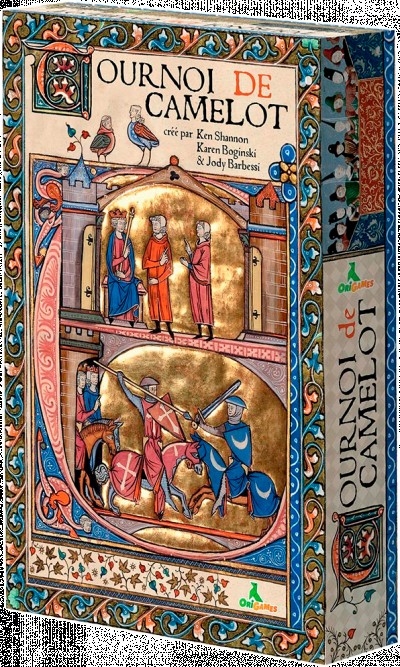 TOURNOI DE
CAMELOT
créé par Ken Shannon
Karen Boginski
& Jody Barbessi
ORIGAMES
TOURNOI de
CAMELOT
ORIGAMES